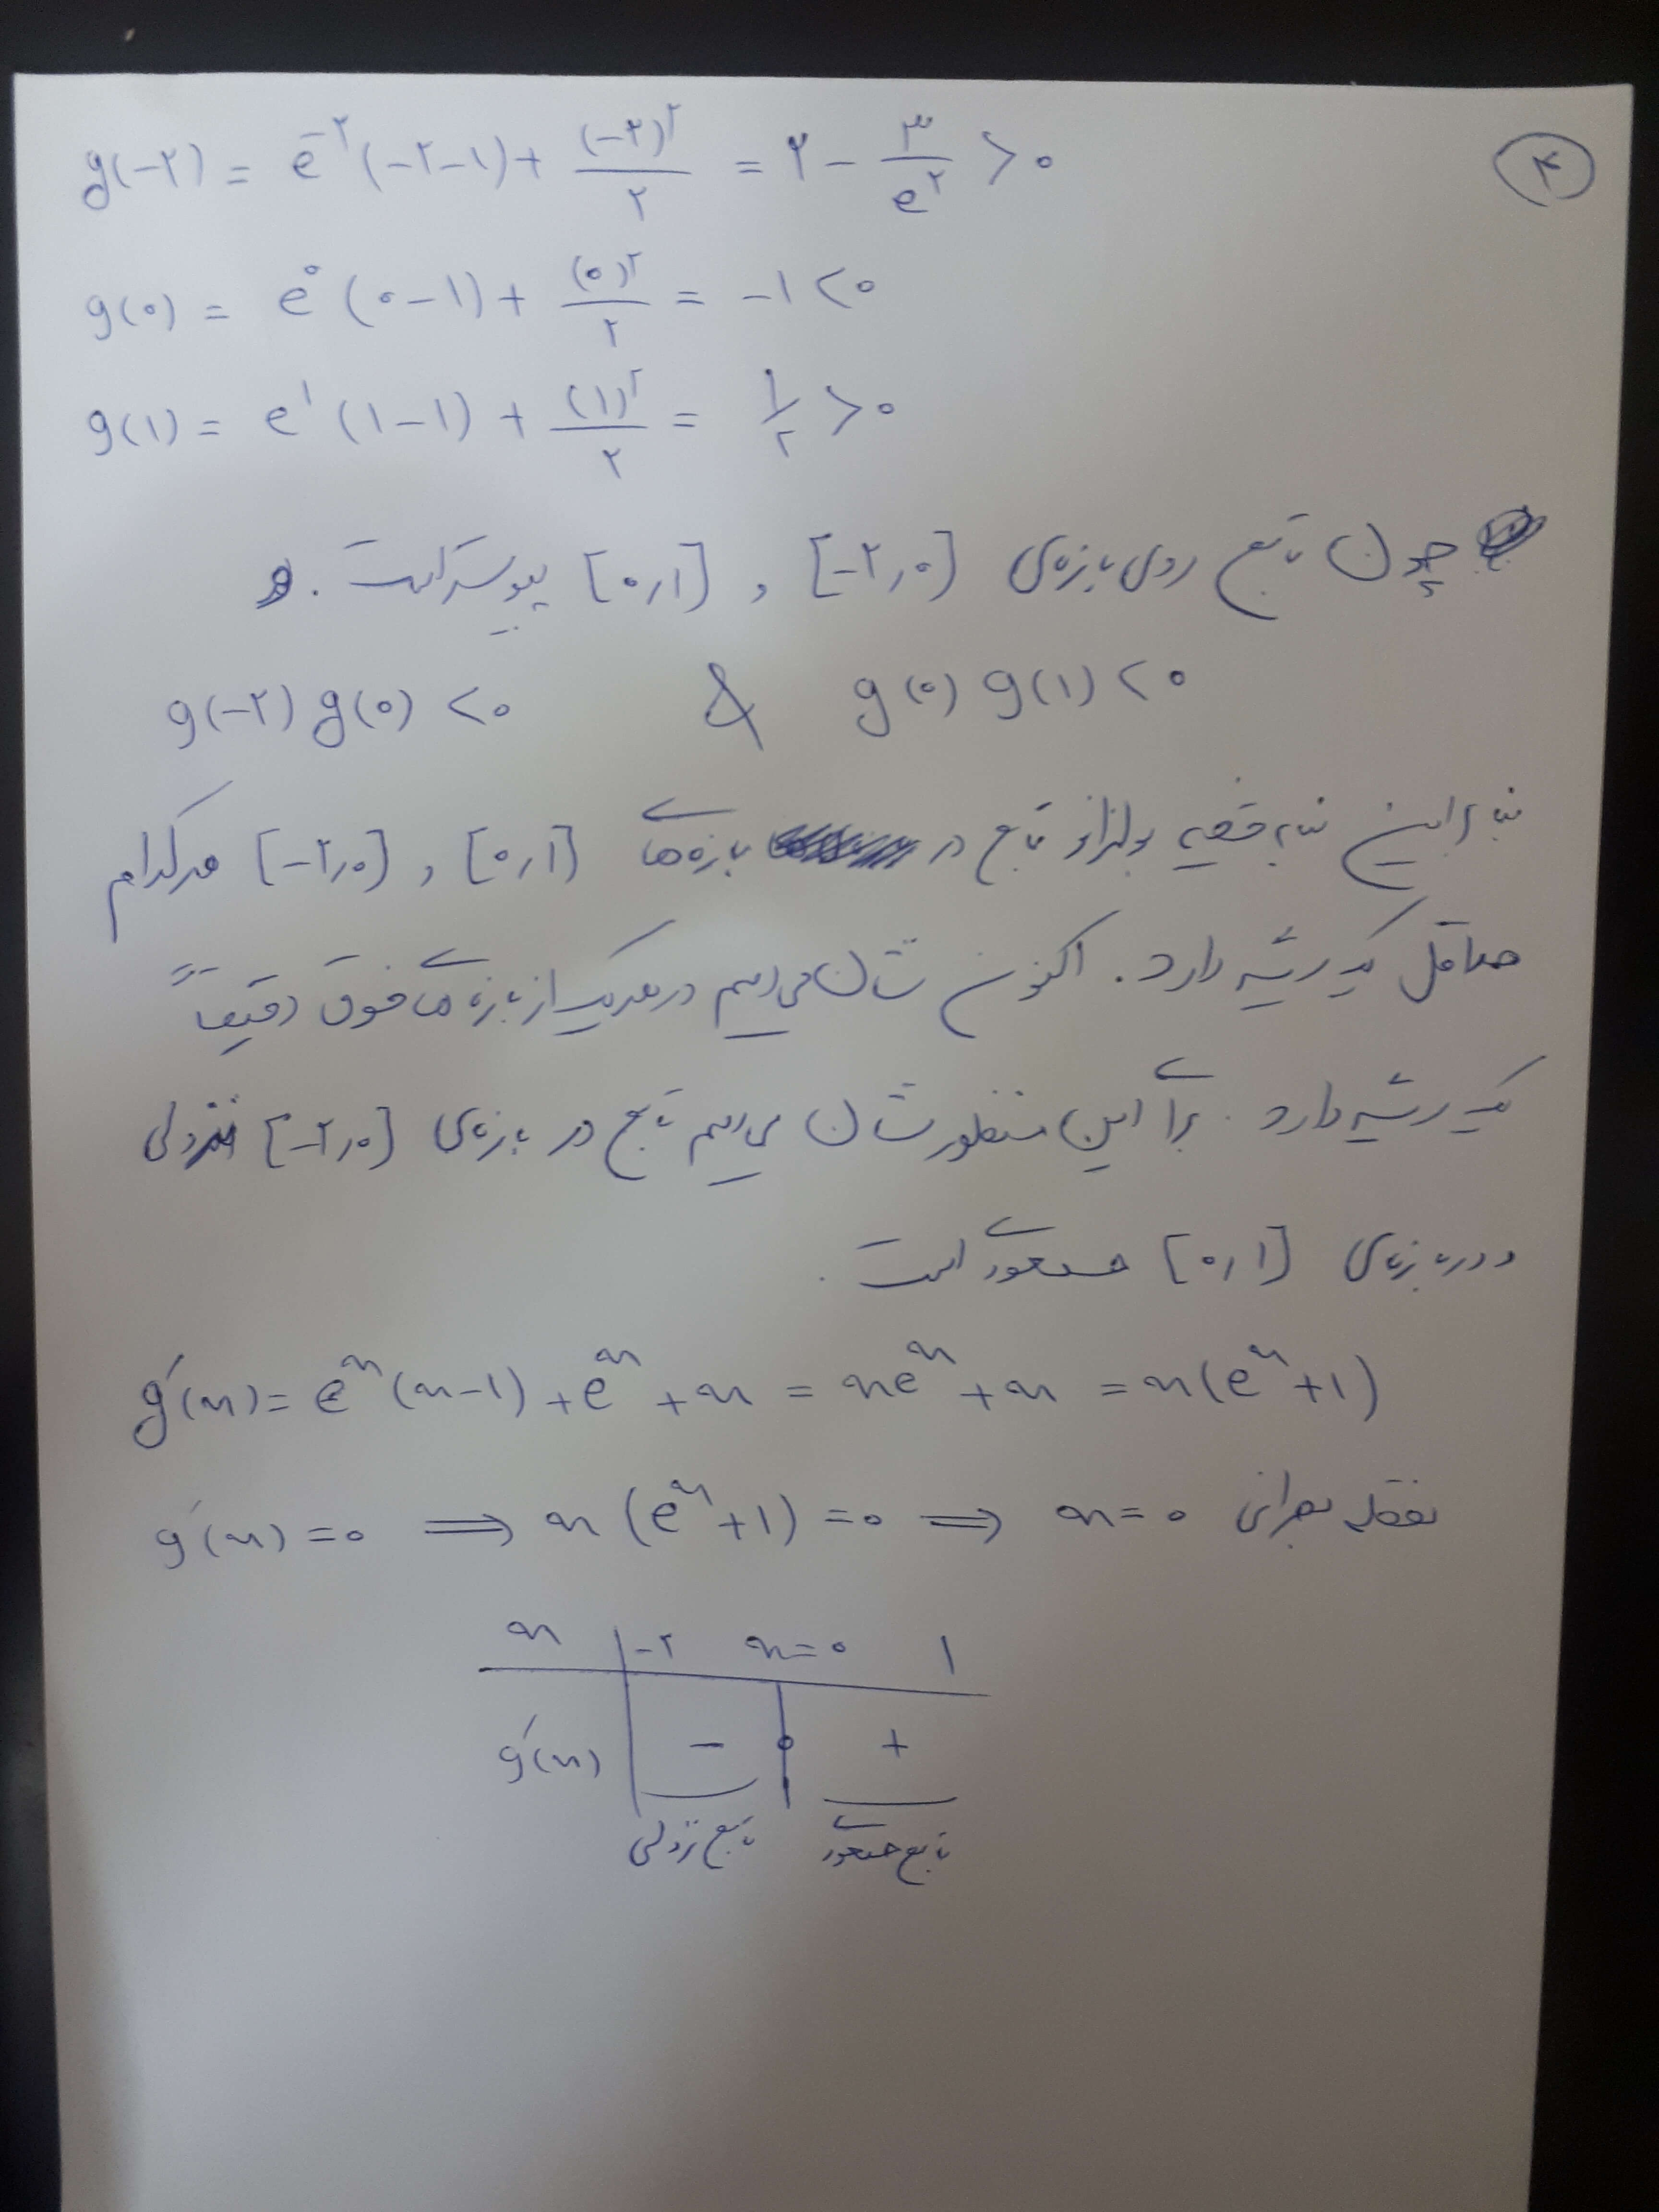 ۳
g(-۲) = e^-۲ (-۲-۱) + (-۲)^۲/۲ = ۲ - ۳/e^۲ > ۰
g(۰) = e^۰ (۰-۱) + (۰)^۲/۲ = -۱ < ۰
g(۱) = e^۱ (۱-۱) + (۱)^۲/۲ = ۱/۲ > ۰
چون تابع روی بازه‌ی [-۲,۰] و [۰,۱] پیوسته است. و
g(-۲) g(۰) < ۰ & g(۰) g(۱) < ۰
بنابراین بنابه قضیه بولزانو تابع در بازه‌های [۰,۱] و [-۲,۰] هرکدام
حداقل یک ریشه دارد. اکنون نشان می‌دهیم در هر یک از بازه‌های فوق دقیقاً
یک ریشه دارد. برای این منظور نشان می‌دهیم تابع در بازه‌ی [-۲,۰] نزولی
و در بازه‌ی [۰,۱] صعودی است.
g'(x) = e^x (x-۱) + e^x + x = xe^x + x = x(e^x+۱)
g'(x) = ۰ ⟹ x (e^x+۱) = ۰ ⟹ x = ۰ نقطه بحرانی
x | -۲ x=۰ ۱
g'(x) | - ۰ +
تابع نزولی تابع صعودی